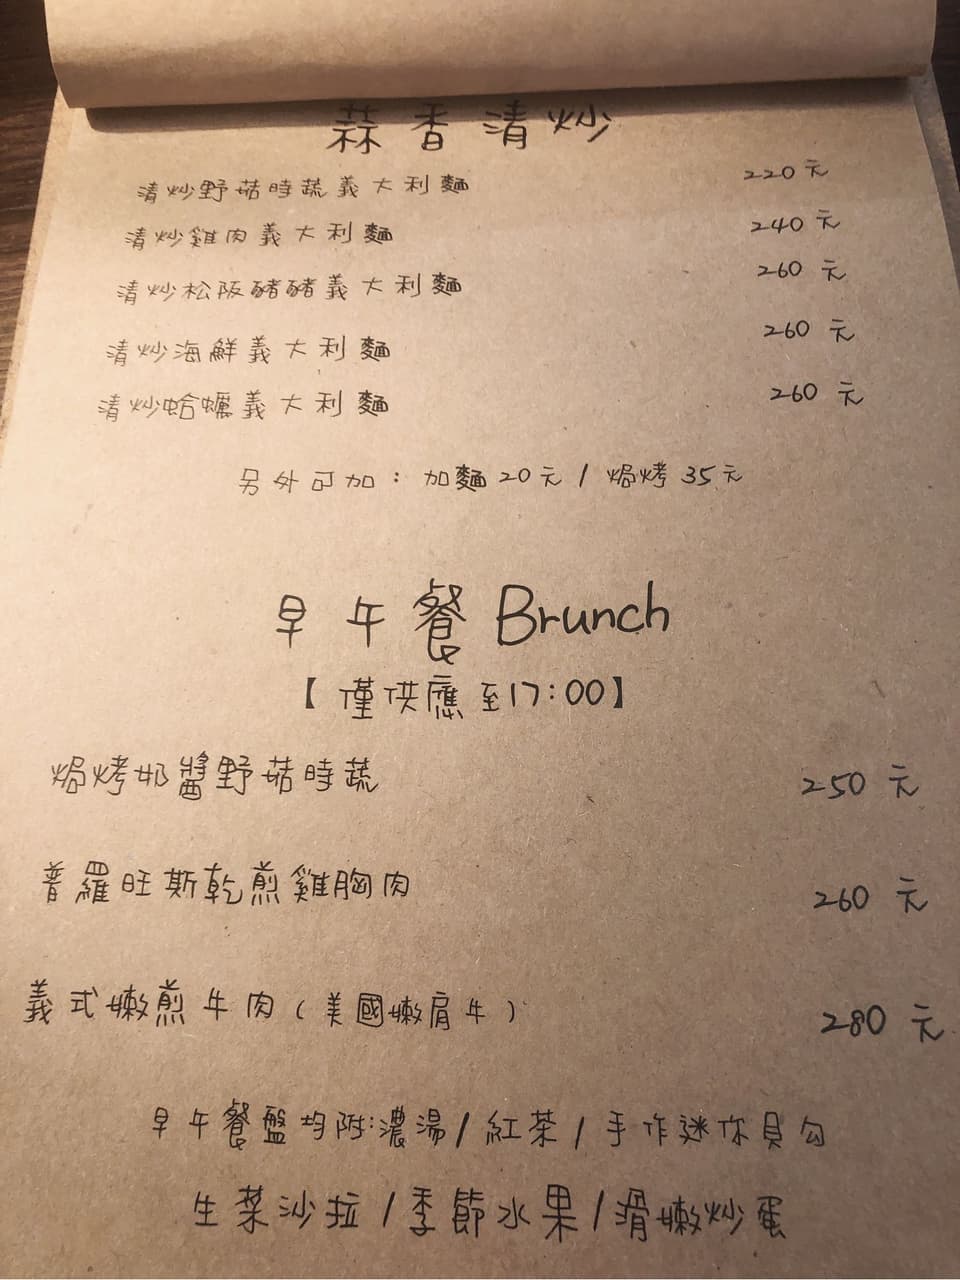 蒜香清炒
清炒野菇時蔬義大利麵 220元
清炒雞肉義大利麵 240元
清炒松阪豬豬義大利麵 260元
清炒海鮮義大利麵 260元
清炒蛤蠣義大利麵 260元
另外可加：加麵20元/焗烤35元
早午餐Brunch
【僅供應至17:00】
焗烤奶醬野菇時蔬 250元
普羅旺斯乾煎雞胸肉 260元
義式嫩煎牛肉(美國嫩肩牛) 280元
早午餐盤均附:濃湯/紅茶/手作迷你貝勾
生菜沙拉/季節水果/滑嫩炒蛋